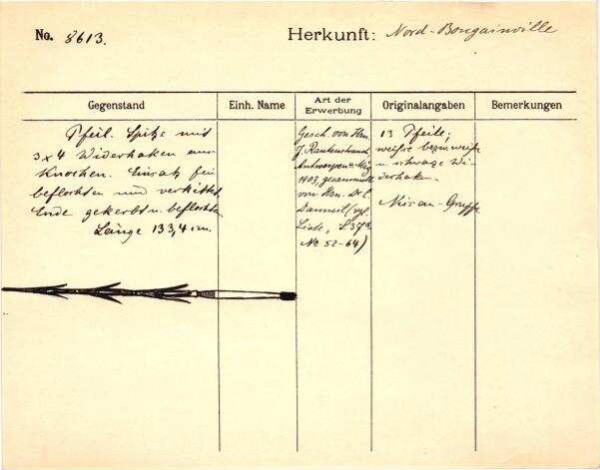 No. 8613.
Herkunft: Nord-Bougainville
Gegenstand
Einh. Name
Art der Erwerbung
Originalangaben
Bemerkungen
Pfeil. Spitze mit
3 x 4 Widerhaken aus
Knochen. Einsatz fein
beflochten und verkittet
Ende gekerbt u. beflochten
Länge 133,4 cm.
Gesch. von Hrn.
Antwerpen
1903, gesammelt
von Hrn. Dr. C.
Danneil (vgl.
Liste, S. 37
No 52-64)
13 Pfeile;
u. Wi-
derhaken.
Nissan-Gruppe